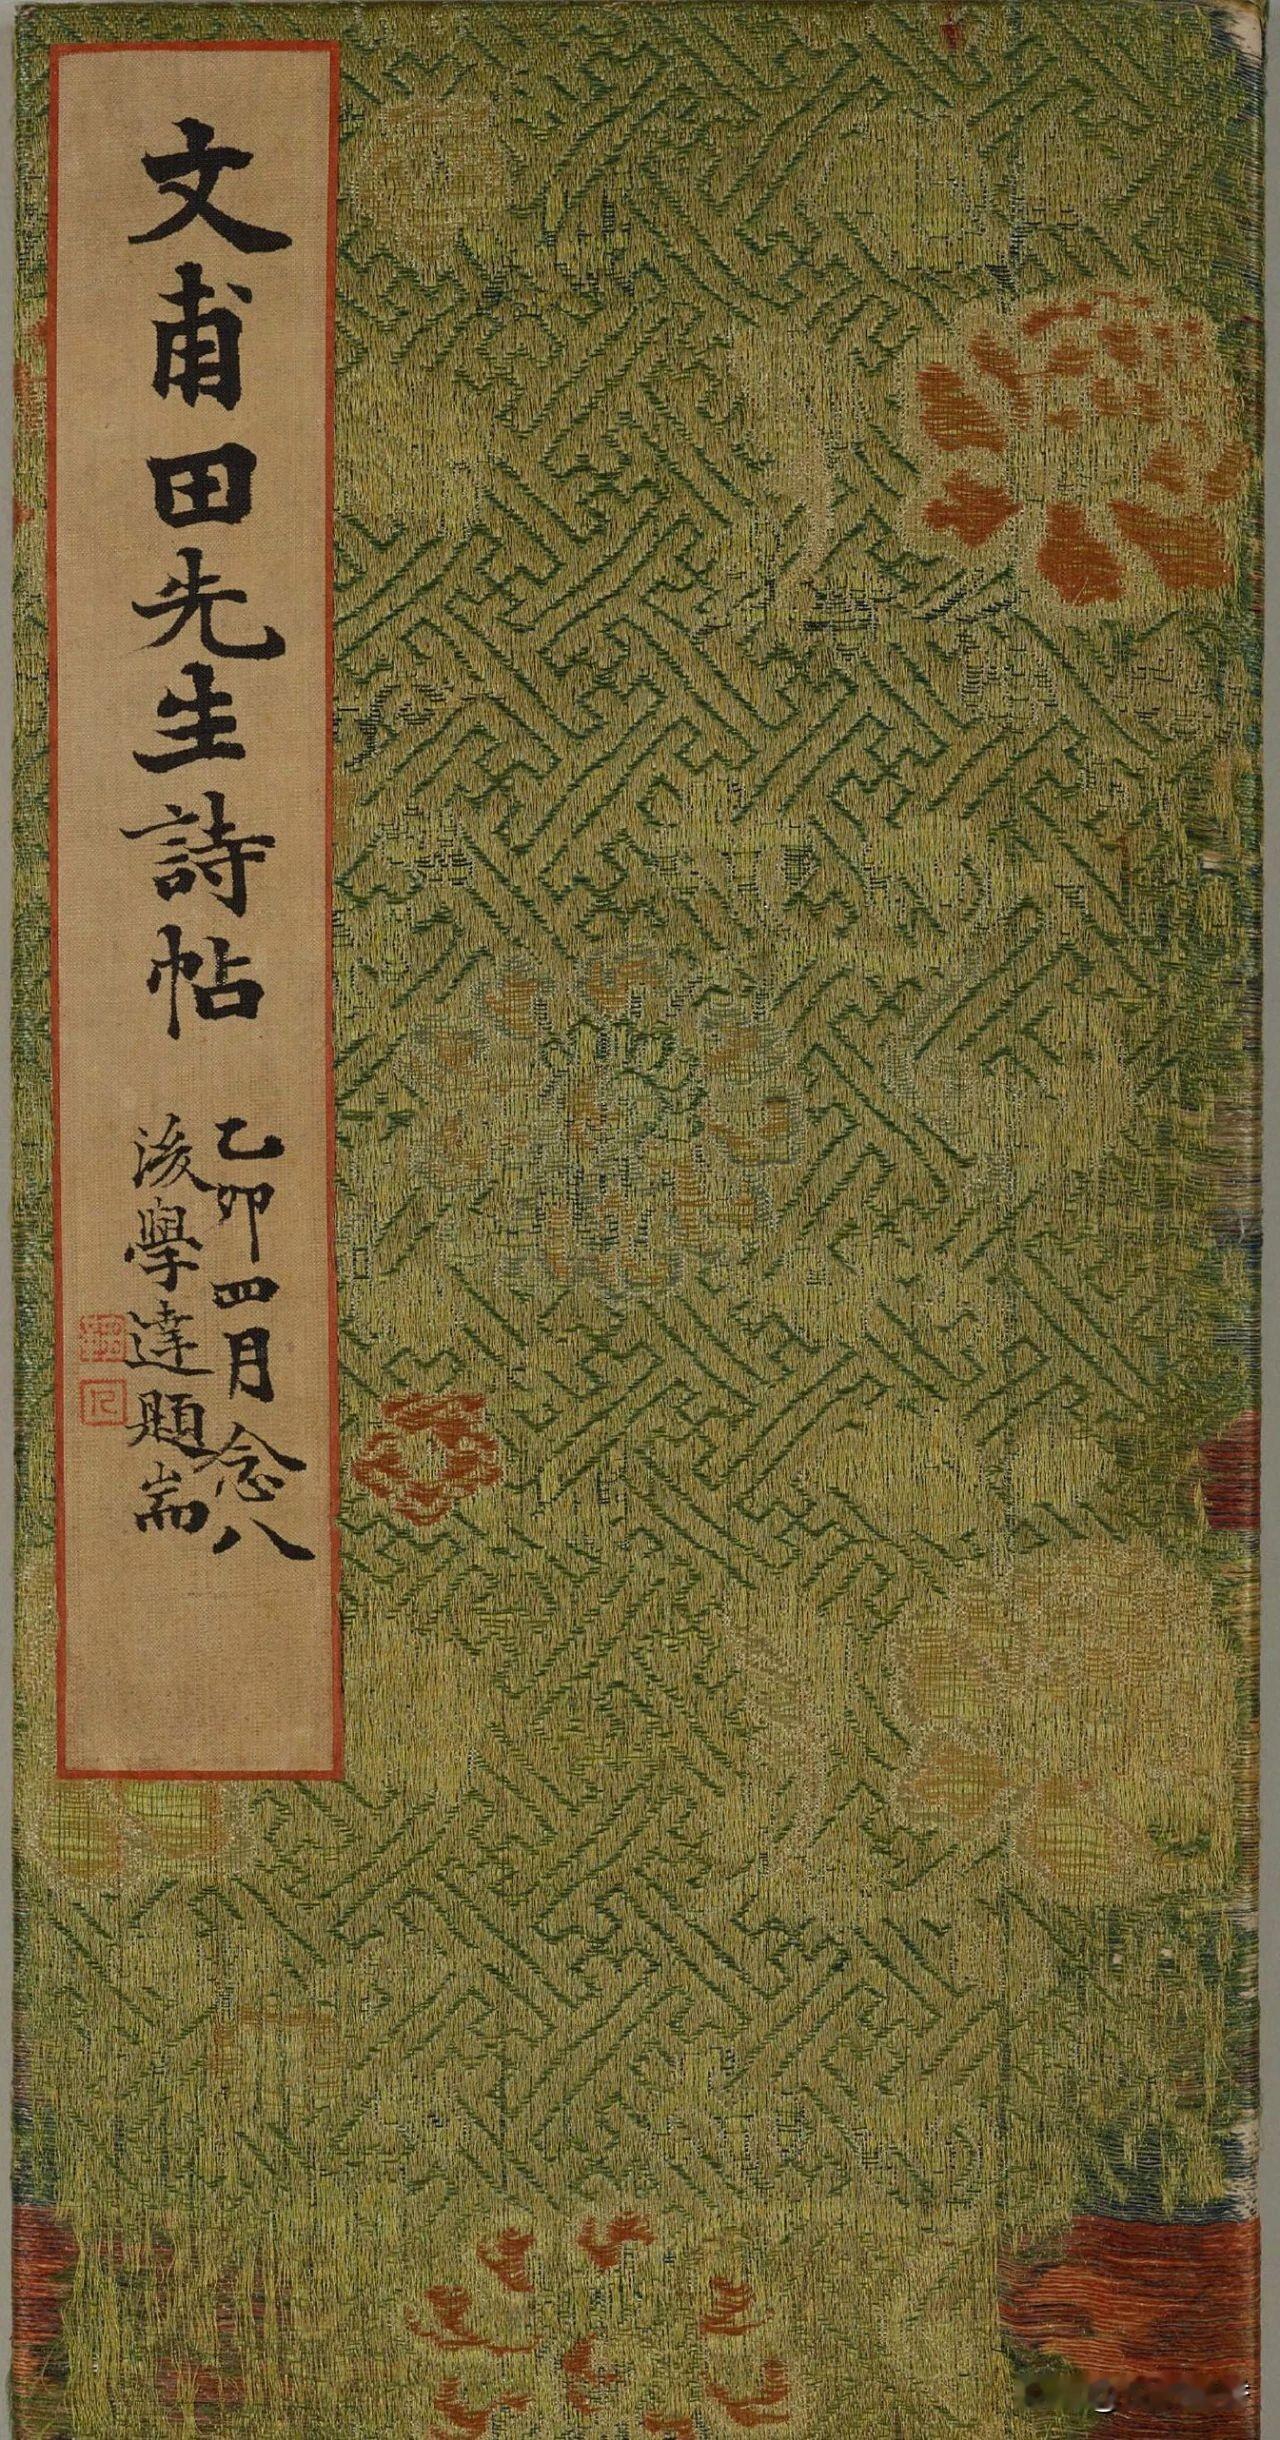 文甫田先生詩帖
乙卯四月念八
後學達題耑